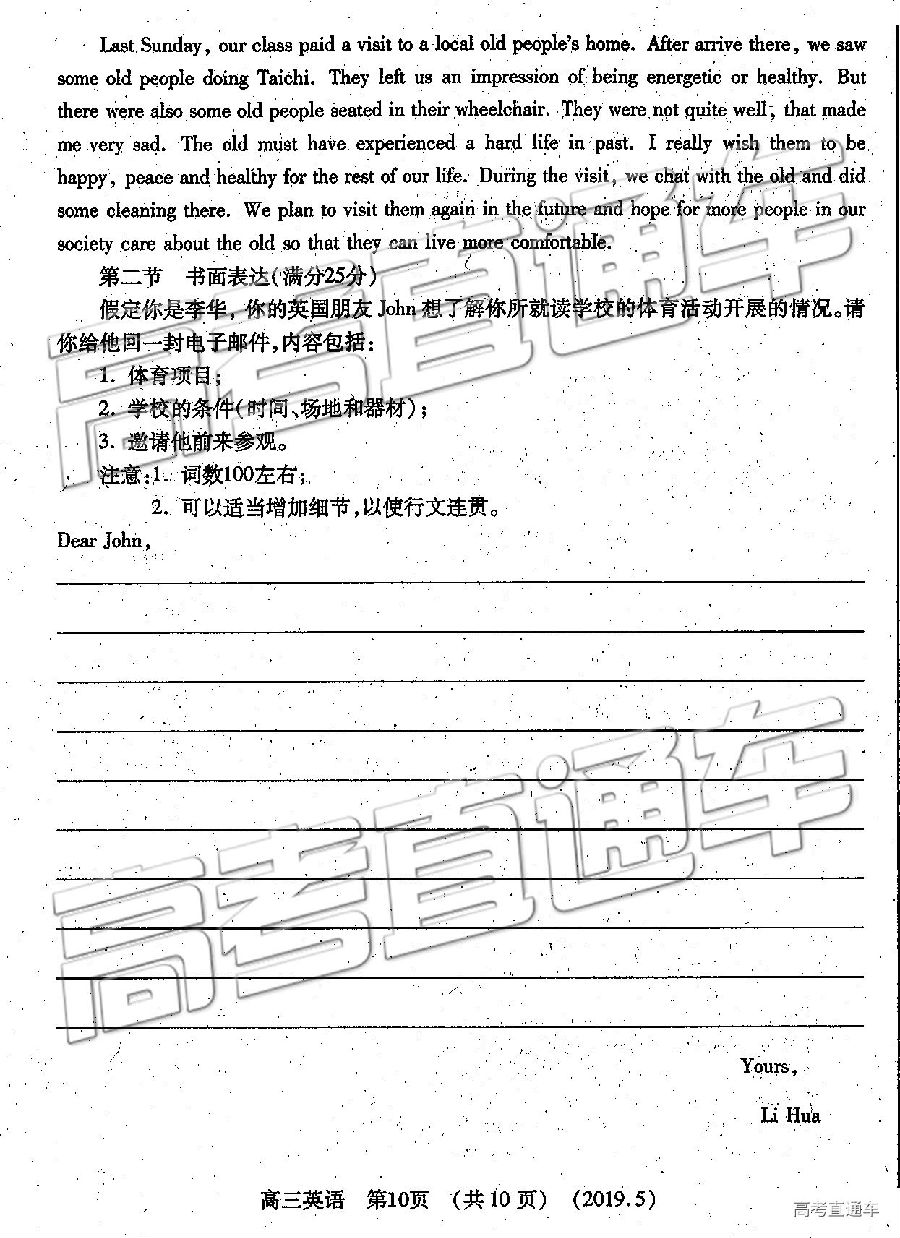 Last Sunday, our class paid a visit to a local old people's home. After arrive there, we saw
some old people doing Taichi. They left us an impression of being energetic or healthy. But
there were also some old people seated in their wheelchair. They were not quite well, that made
me very sad. The old must have experienced a hard life in past. I really wish them to be
happy, peace and healthy for the rest of our life. During the visit, we chat with the old and did
some cleaning there. We plan to visit them again in the future and hope for more people in our
society care about the old so that they can live more comfortable.
第二节 书面表达(满分25分)
假定你是李华,你的英国朋友John想了解你所就读学校的体育活动开展的情况。请
你给他回一封电子邮件,内容包括:
1. 体育项目;
2. 学校的条件(时间、场地和器材);
3. 邀请他前来参观。
注意:1. 词数100左右;
2. 可以适当增加细节,以使行文连贯。
Dear John,
Yours,
Li Hua
高三英语 第10页 (共10页) (2019.5)
高考直通车
高考直通车
高考直通车